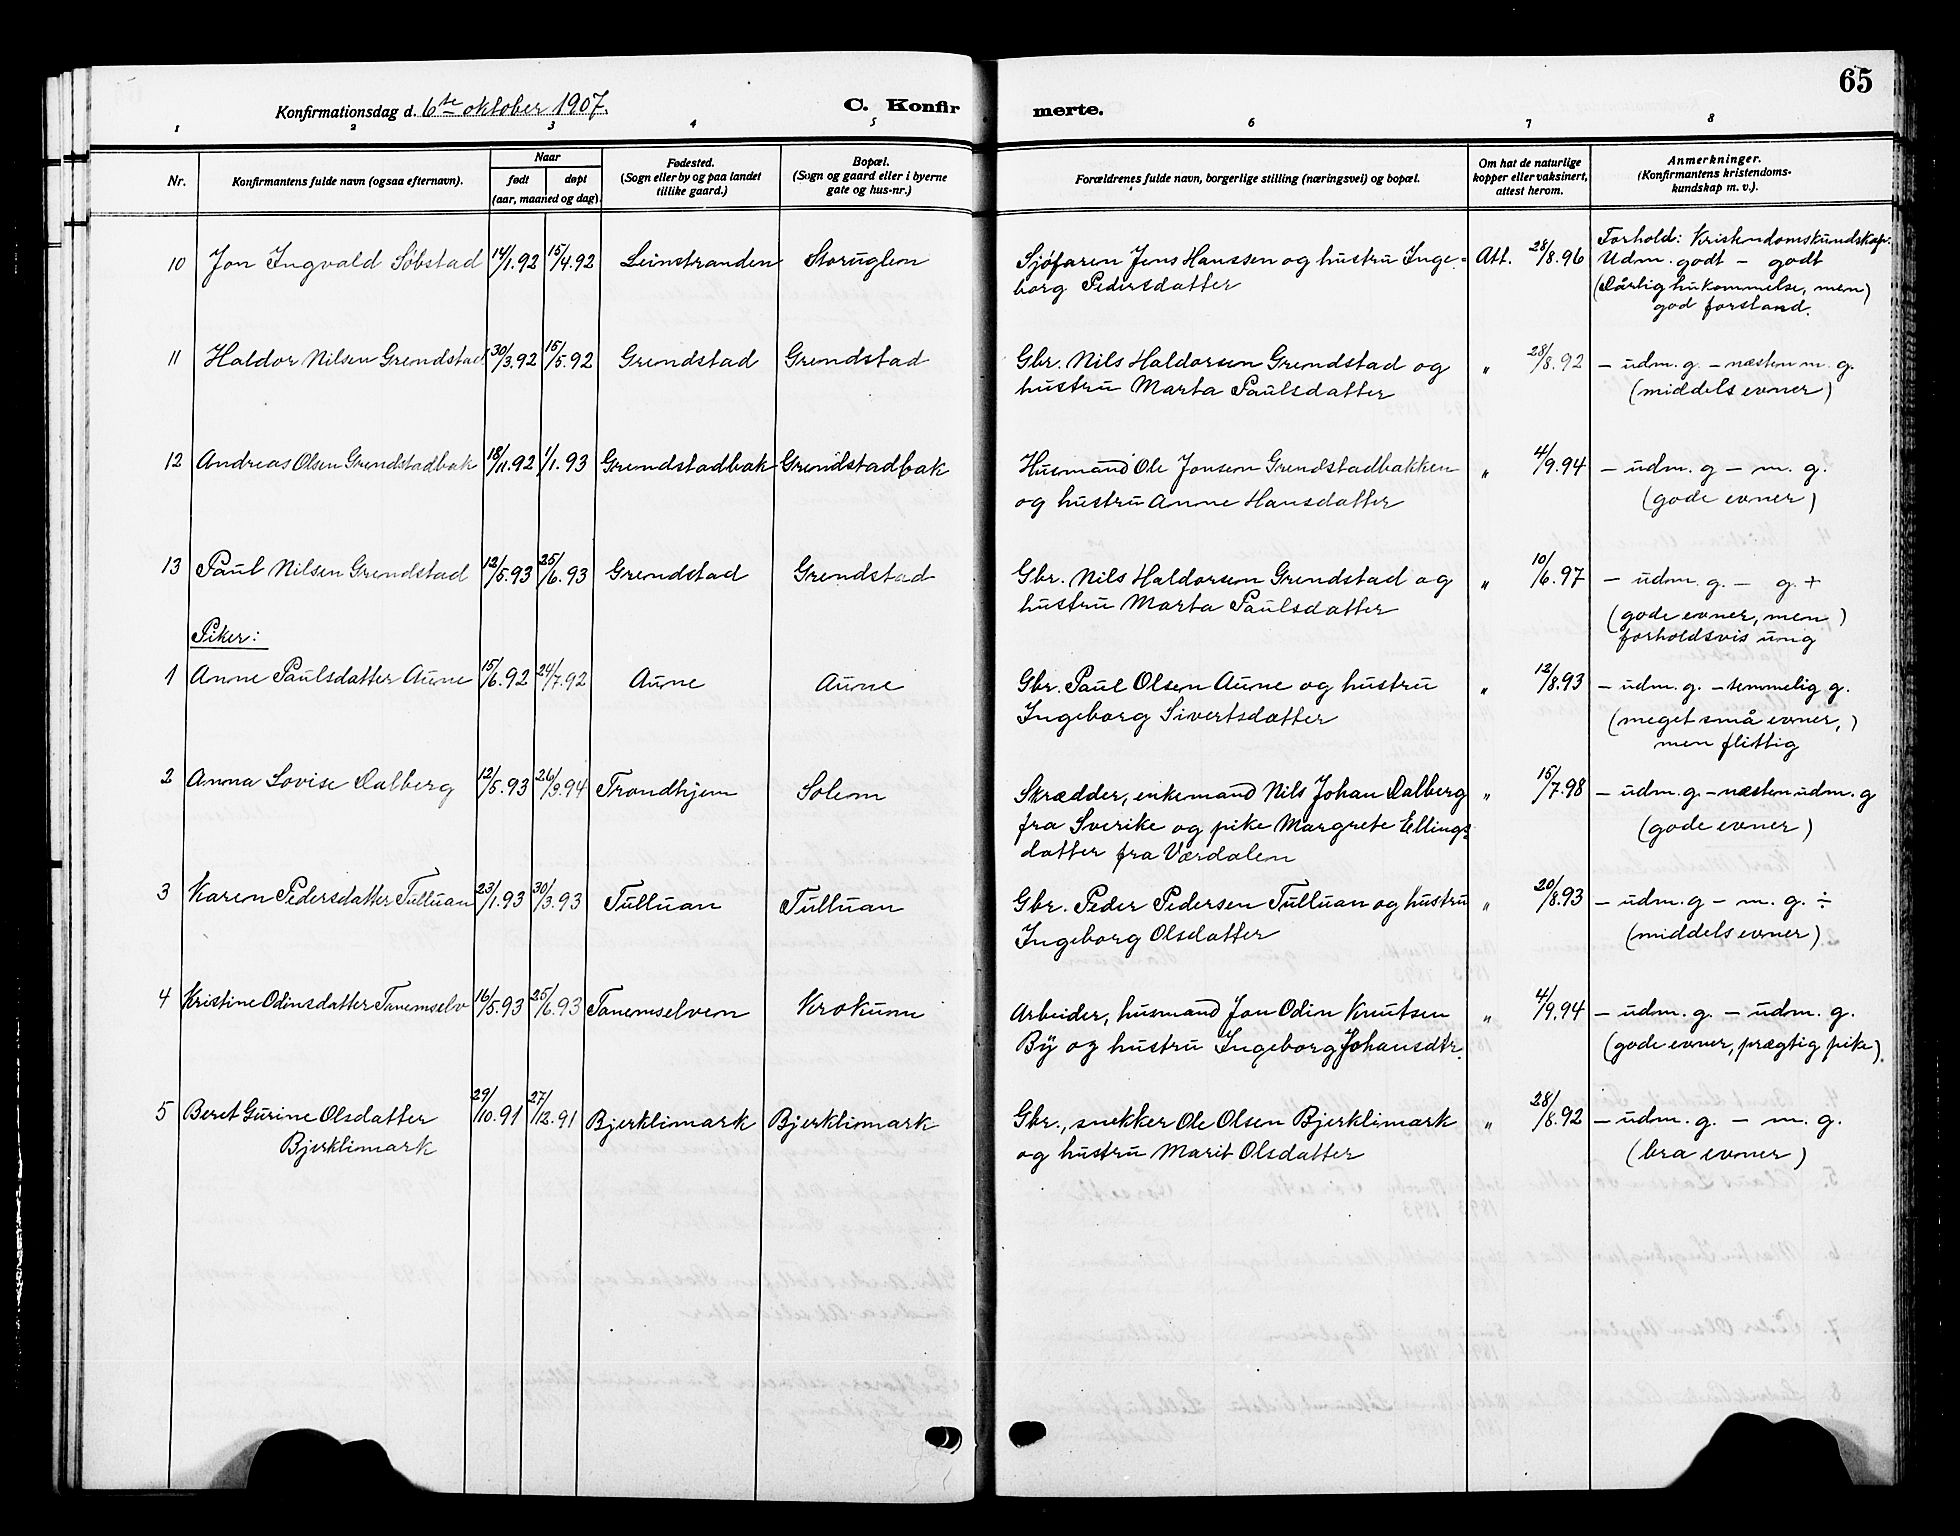 65
Konfirmationsdag d. 6te oktober 1907.
C. Konfirmerte.
1 2 3 4 5 6 7 8
Nr.
Konfirmantens fulde navn (ogsaa efternavn).
Naar
født
døpt
(aar, maaned og dag).
Fødested.
(Sogn eller by og paa landet
tillike gaard.)
Bopæl.
(Sogn og gaard eller i byerne
gate og hus-nr.)
Forældrenes fulde navn, borgerlige stilling (næringsvei) og bopæl.
Om hat de naturlige
kopper eller vaksinert,
attest herom.
Anmerkninger.
(Konfirmantens kristendoms-
kundskap m. v.).
10 Jon Ingvald Söbstad 14/1.92 15/4.92 Leinstranden Storuglen Sjöfaren Jens Hanssen og hustru Inge- Att. 28/8.96 Forhold: Kristendomskundskap:
borg Pedersdatter Udm. godt – godt
(Dårlig hukommelse, men)
god forstand.
11 Haldor Nilsen Grendstad 30/3.92 15/5.92 Grendstad Grendstad Gbr. Nils Haldorsen Grendstad og " 28/8.92 – udm. g. – næsten m. g.
hustru Marta Paulsdatter (middels evner)
12 Andreas Olsen Grendstadbak 18/11.92 1/1.93 Grendstadbak Grendstadbak Husmand Ole Jonsen Grendstadbakken " 4/9.94 – udm. g – m. g.
og hustru Anne Hansdatter (gode evner)
13 Paul Nilsen Grendstad 12/5.93 25/6.93 Grendstad Grendstad Gbr. Nils Haldorsen Grendstad og " 10/6.97 – udm. g. – g. +
hustru Marta Paulsdatter (gode evner, men)
forholdsvis ung
Piker:
1 Anne Paulsdatter Aune 15/6.92 24/7.92 Aune Aune Gbr. Paul Olsen Aune og hustru " 12/8.93 – udm. g. – temmelig g.
Ingeborg Sivertsdatter (meget små evner,)
men flittig
2 Anna Lovise Dalberg 12/5.93 26/3.94 Trondhjem Solem Skrædder, enkemand Nils Johan Dalberg " 15/7.98 – udm. g. – næsten udm. g
fra Sverike og pike Margrete Ellings- (gode evner)
datter fra Værdalen
3 Karen Pedersdatter Tulluan 23/1.93 30/3.93 Tulluan Tulluan Gbr. Peder Pedersen Tulluan og hustru " 20/8.93 – udm. g – m. g. ÷
Ingeborg Olsdatter (middels evner)
4 Kristine Odinsdatter Tanemselv 16/5.93 25/6.93 Tanemselven Krokum Arbeider, husmand Jon Odin Knutsen " 4/9.94 – udm. g. – udm. g.
By og hustru Ingeborg Johansdtr. (gode evner, prægtig pike).
5 Beret Gurine Olsdatter 29/10.91 27/12.91 Bjerklimark Bjerklimark Gbr., snekker Ole Olsen Bjerklimark " 28/8.92 – udm. g. – m. g.
Bjerklimark og hustru Marit Olsdatter (bra evner)